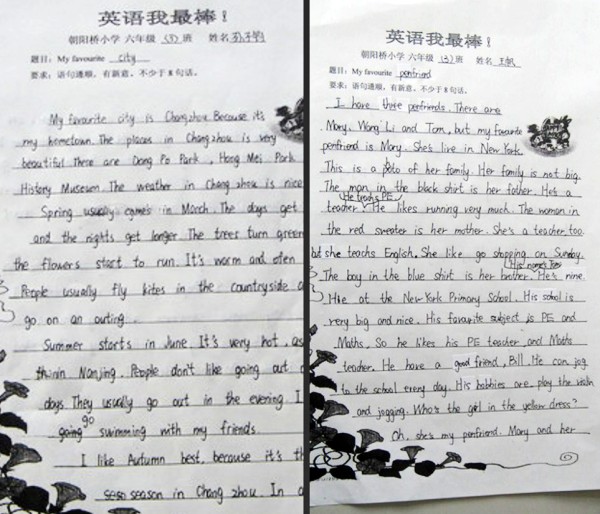 英语我最棒!
朝阳桥小学 六年级 (3) 班 姓名
题目: My favourite city
要求: 语句通顺, 有新意, 不少于 8 句话。
My favourite city is Changzhou. Because it's
my hometown. The places in Changzhou is very
beautiful. There are Dong Po Park, Hong Mei Park
History Museum. The weather in Chang zhou is nice
Spring usually comes in March. The days get
and the nights get longer. The trees turn green
the flowers start to run. It's worm and
People usually fly kites in the countryside a
go on an outing.
Summer starts in June. It's very hot. as
in Nanjing. People don't like going out
days. They usually go out in the evening. I
going go swimming with my friends.
I like Autumn best, because it's th
season in Chang zhou. In a
英语我最棒!
朝阳桥小学 六年级 (3) 班 姓名 王帆
题目: My favourite penfriend
要求: 语句通顺, 有新意, 不少于 8 句话。
I have three penfriends. There are
Mary, Wang Li and Tom, but my favourite
penfriend is Mary. She's live in New York.
This is a poto of her family. Her family is not big.
The man in the black shirt is her father. He's a
teacher. He teachs PE. He likes running very much. The woman in
the red sweater is her mother. She's a teacher, too.
but she teachs English. She like go shopping on Sunday.
The boy in the blue shirt is her brother. His name's Tom. He's nine.
He at the New York Primary School. His school is
very big and nice. His favourite subject is PE and
Maths. So he likes his PE teacher and Maths
teacher. He have a good friend, Bill. He can jog
to the school every day. His hobbies are play the violin
and jogging. Who's the girl in the yellow dress?
Oh, she's my penfriend. Mary and her